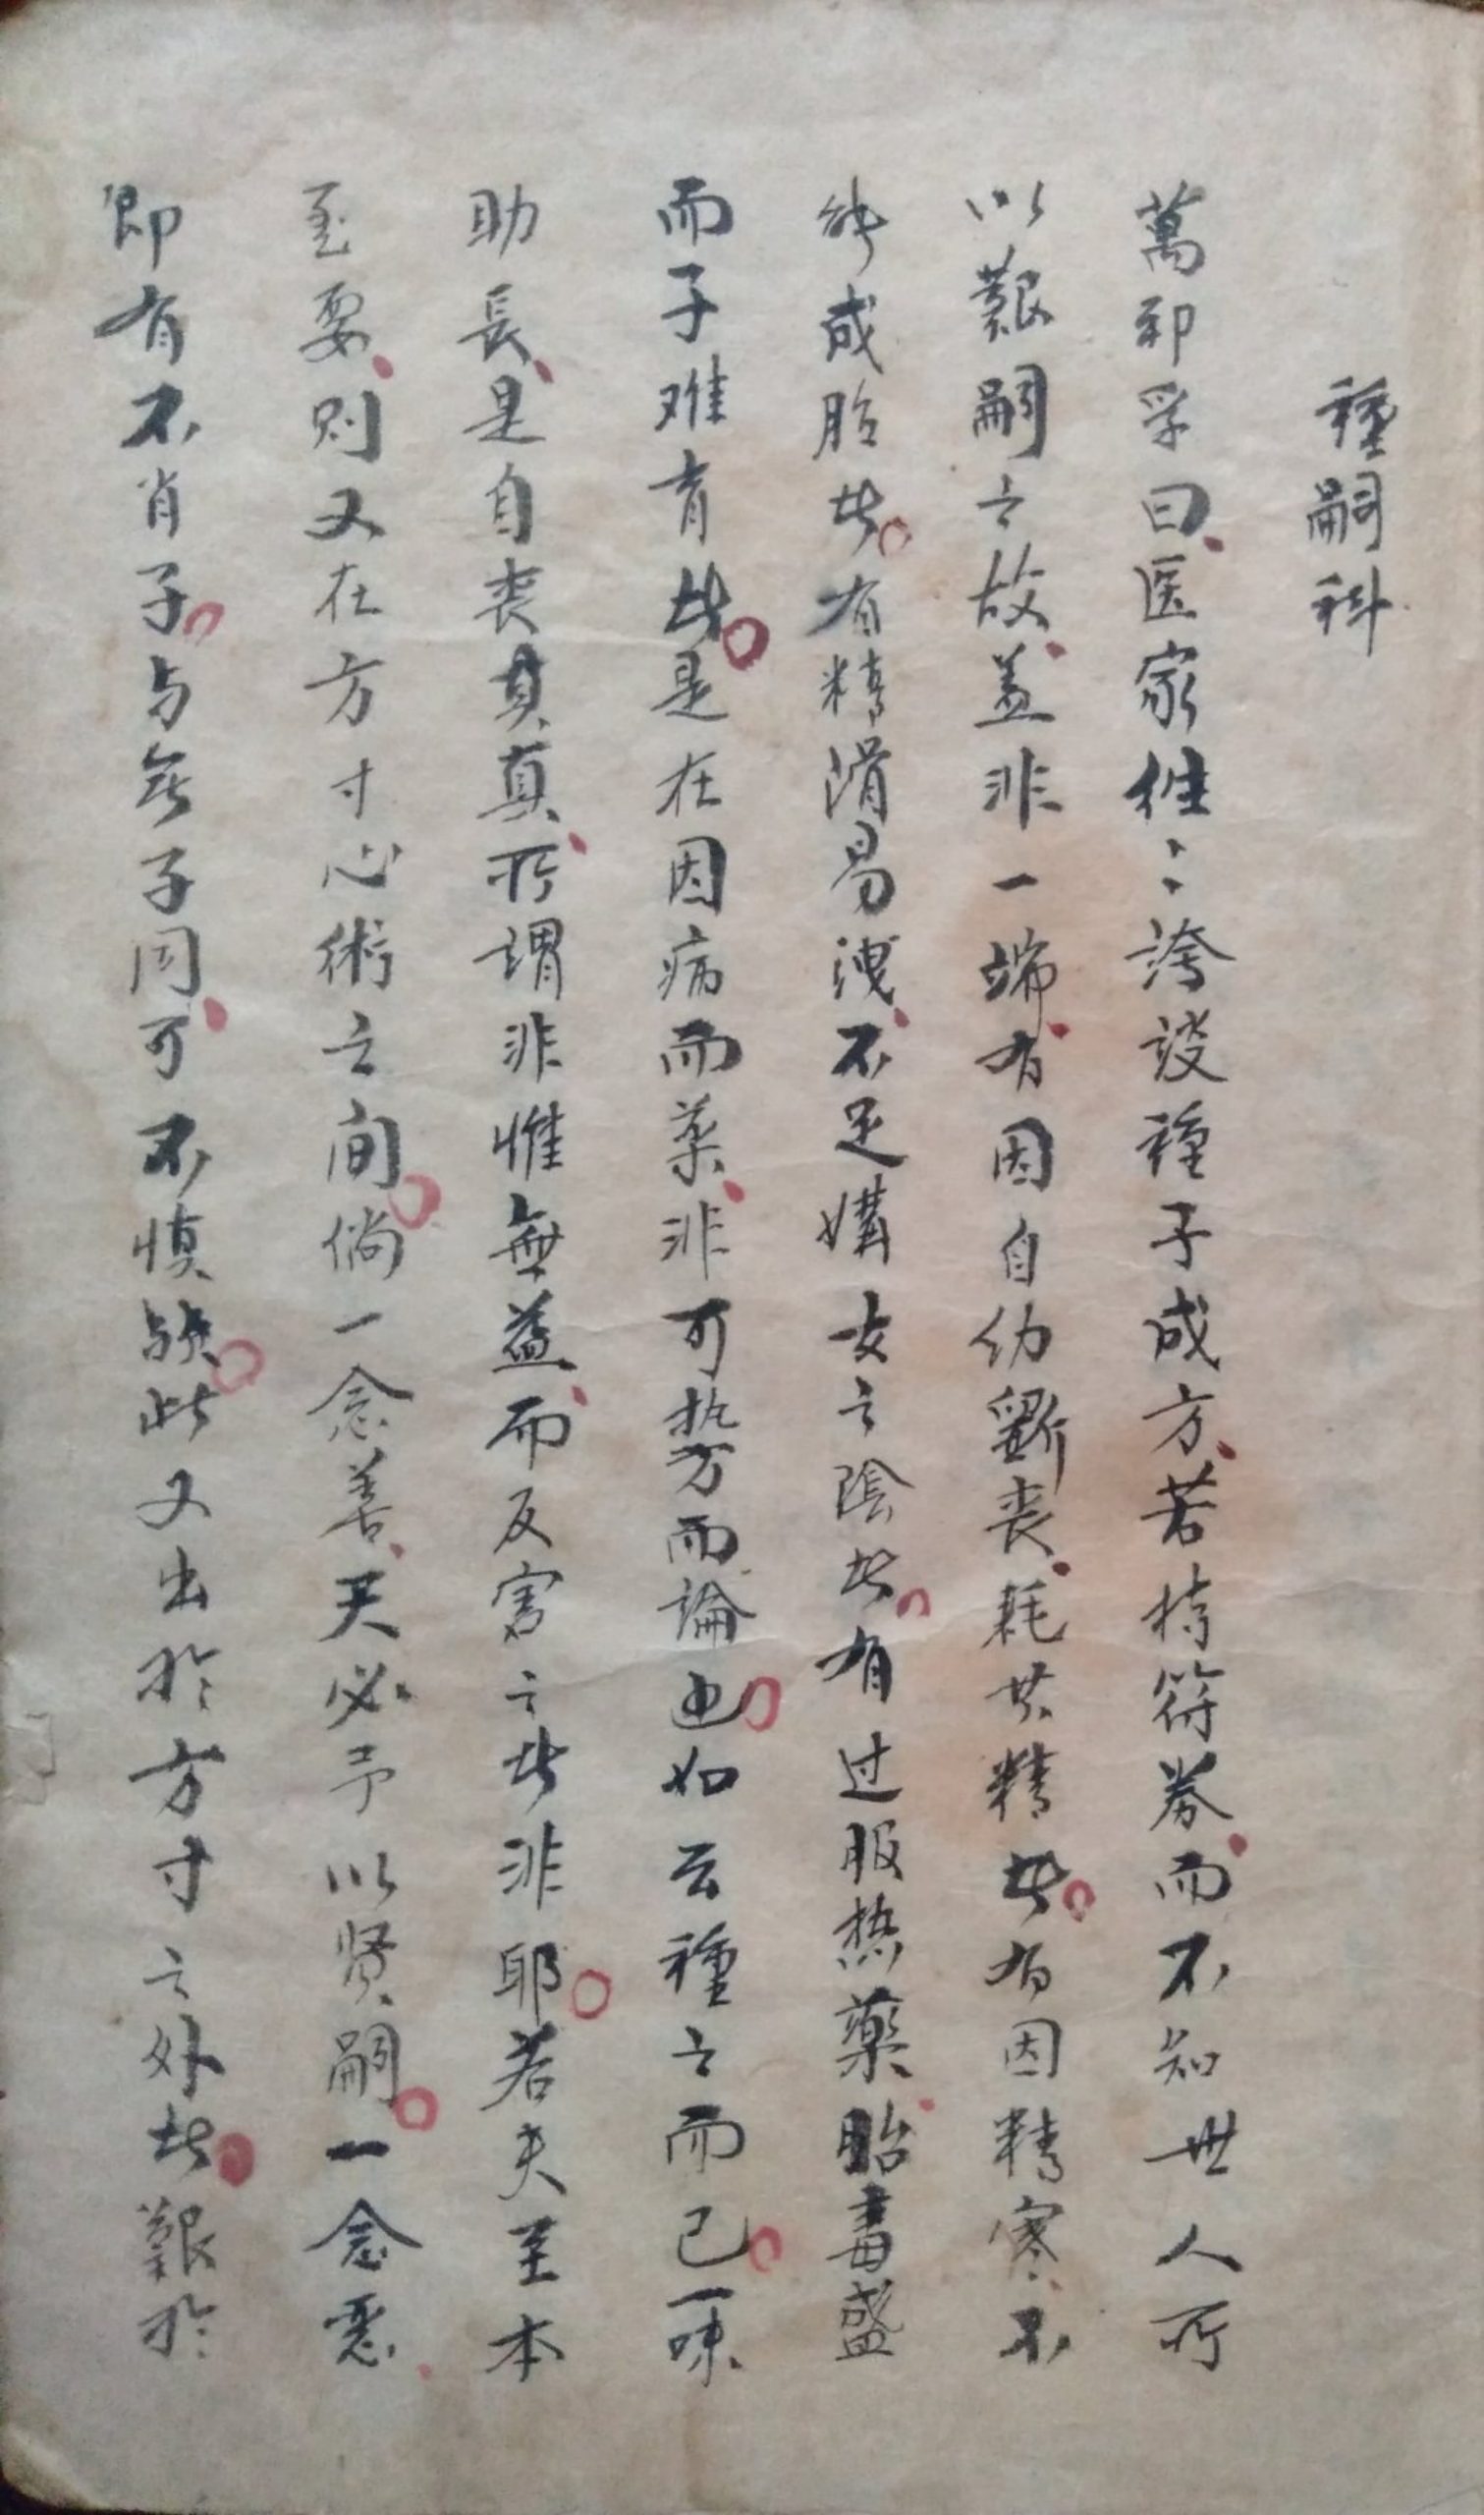 種嗣科
萬邦孚曰医家徃々誇談種子成方若持符券而不知世人所
以艱嗣之故盖非一端有因自幼斵丧耗其精者有因精寒不
能成胎者有精滑易洩不足媾女之陰者有过服热藥胎毒盛
而子难育者是在因病而薬非可执方而論也如云種之而已一味
助長是自丧其真所謂非惟無益而反害之者非耶若夫至本
至要则又在方寸心術之间倘一念善天必予以贤嗣一念悪
即有不肖子与无子同可不慎欤此又出於方寸之外者艱於